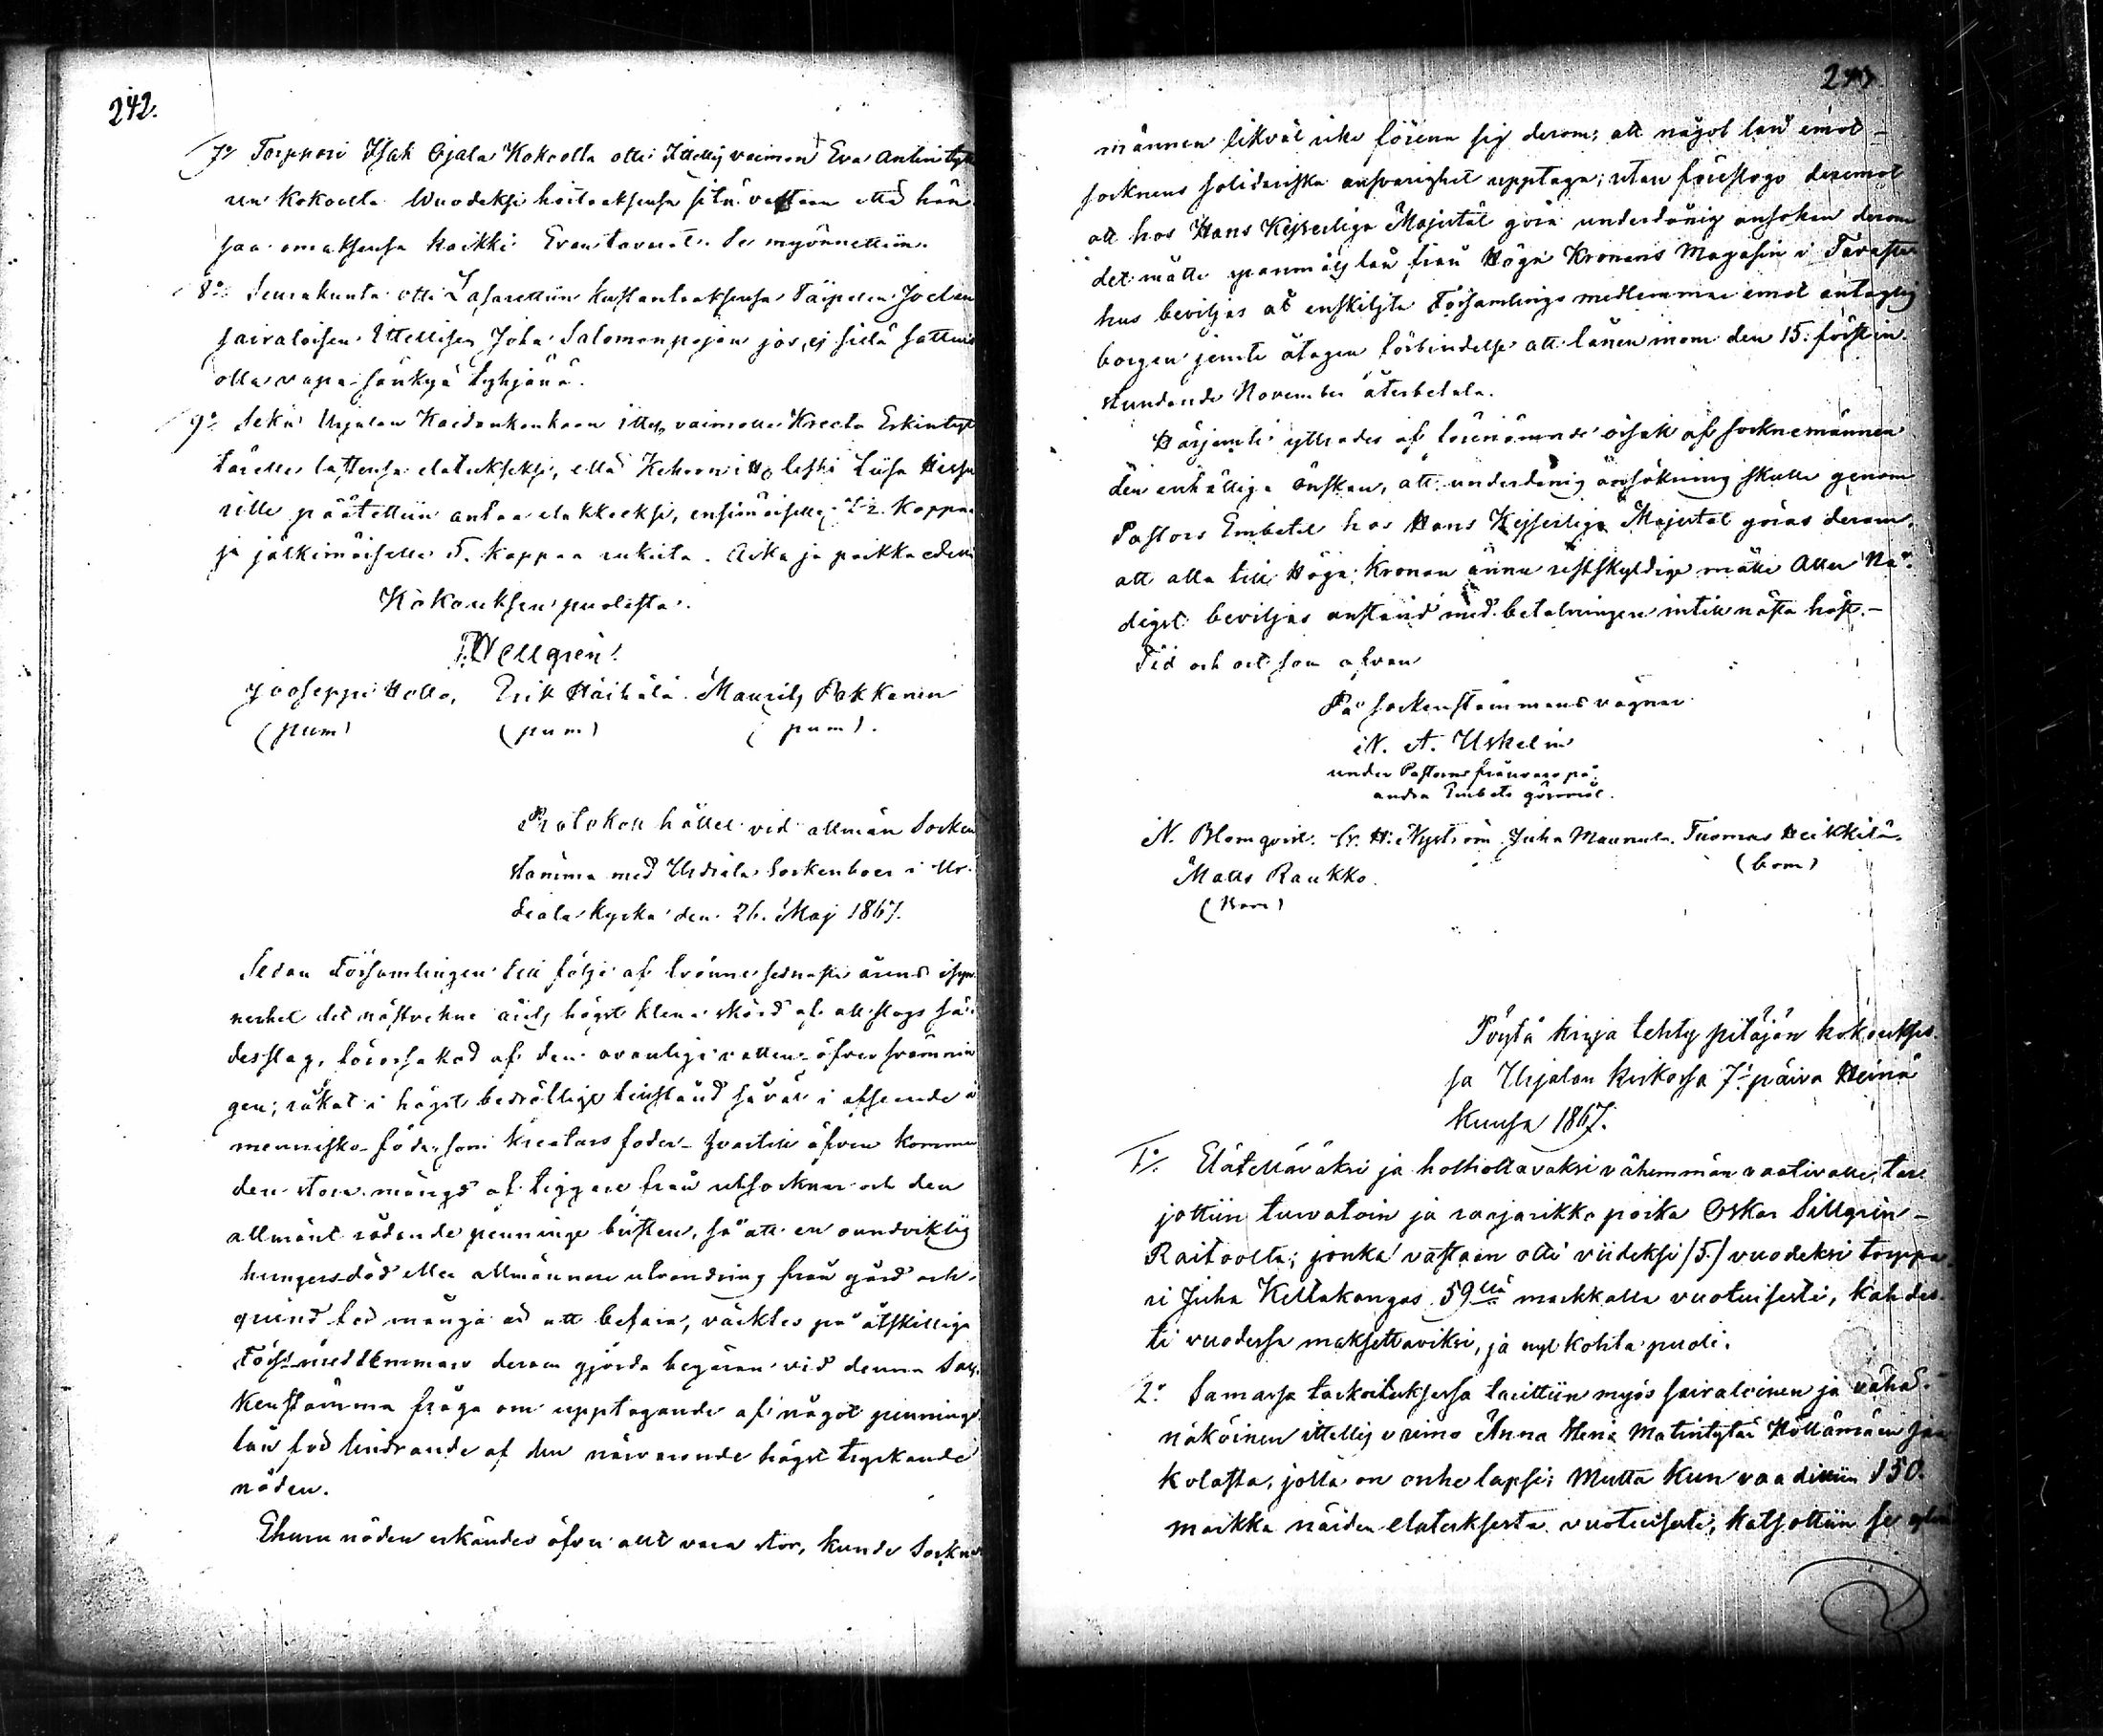 242.
7:o Torppari Isak Ojala Kokoolla otti Ittellis vaimon Eva Antintytt
ren Kokoolta Wuodeksi hoitoaksensa sitä vastaan että hän
saa omaksensa kaikki Evan tavarat. Se myönnettiin.
8:o Seurakunta otti Lasarettiin kustantaaksensa Taipalen Joelan
sairaloisen Ittellisen Joha Salomonpojan jos, ej siellä sattuis
olla vapa sänkyä tyhjänä.
9:o Sekä Urjalan Kaidankankaan ittell. vaimolle Kreeta Erkintyt
tärelle lastensa elatukseksi, että Kehron i Ho leski Liisa
rille päätettiin antaa elakkeeksi, ensimäiselle 12. Kappaa
ja jälkimäiselle 5. kappaa rukiita. Aika ja paikka edell.
Kokouksen puolesta.
Wellgren.
Jooseppi Hollo, Erik Häihälä. Maurits Pakkanen
(pum) (pum) (pum).
Protokoll hållet vid allmän Socken
stämma med Urdiala Sockenboer i Ur-
diala Kyrka den 26. Maj 1867.
Sedan Församlingen till följe af trenne sednaste årens isyn-
nerhet det nästvekne årets högst klena skörd af all slags sä-
desslag, förorsakad af den ovanliga vatten-öfversvämnin
gen; råkat i högst bedröfligt tillstånd såväl i afseende å
mennisko-föda, som kreaturs foder- hvartill äfven kommer
den stora mängd af tiggare från utsocknar och den
allmänt rådande penninge bristen, så att en oundviklig
hungersdöd eller allmännare utvandring från gård och
grund
Förs:medlemmar derom gjorda begäran vid denna Soc-
kenstämma fråga om upptagande af något pennings
lån lindrande af den närvarande högst tryckande
nöden.
Ehuru nöden erkändes öfver allt vara stor, kunde Sockne
243.
männen likväl icke förena sig derom; att något lån emot
socknens solidariska ansvarighet upptaga; utan föreslogo deremot
att hos Hans Kejserliga Majestät göra underdånig ansökan derom
det måtte spanmåls lån från Höga Kronans Magasin i Tavaste-
hus beviljas åt enskilta Församlings medlemmar emot antaglig
borgen jemte åtagen förbindelse att lånen inom den 15: först in-
stundande November återbetala.
Härjemte yttrades af förenämnde orsak af Socknemännen
den enhälliga önskan, att underdånig ansökning skulle genom
Pastors Embetet hos Hans Kejserliga Majestät göras derom,
att alla till Höga Kronan ännu restskyldiga måtte Aller Nå-
digst beviljas anstånd med betalningen intill nästa höst.-
Tid och ort som ofvan
På Sockenstämmans vägnar
N. A. Uskelin
under Pastorns frånvaro på
andra Embets göromål.
N. Blomqvist. Gr. H. Nyström Juha Maunula. Tuomas Heikkilä.
(bom)
Matts Raukko.
(Bom)
Pöytä kirja tehty pitäjän kokoukses-
sa Urjalan kirkossa 7:o päivä Heinä
kuussa 1867.
1:o Elätettäväksi ja holhottavaksi vähemmän vaativalle, tar-
jottiin turvatoin ja raajarikko poika Oskar Sillgrén
Raitoolta; jonka vastaan otti viideksi /5./ vuodeksi torppa-
ri Juha Keltakangas 59:llä markkalla vuotuisesti, kahdes-
ti vuodessa maksettaviksi, ja nyt kohta puoli.
2:o Samassa tarkoituksessa tarittiin myös sairaloinen ja vähä-
näköinen ittellis vaimo Anna Stina Matintytär Höllämäen Jaa
kolasta, jolla on onhe lapsi; Mutta kun vaadittiin 150.
markka näiden elatuksesta vuotuisesti, katsottiin se ylön